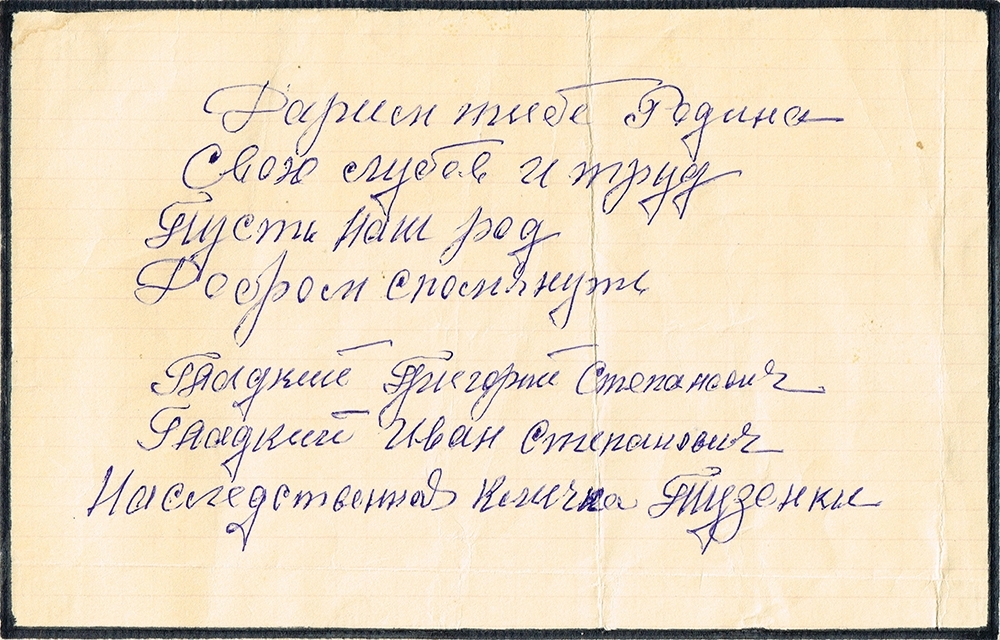 Дарим тибе Родина
Свою лубов и труд
Пусть наш род
Добром спомянуть
Гладкий Григорий Степанович
Гладкий Иван Степанович
Наследственная кличка Тузенки